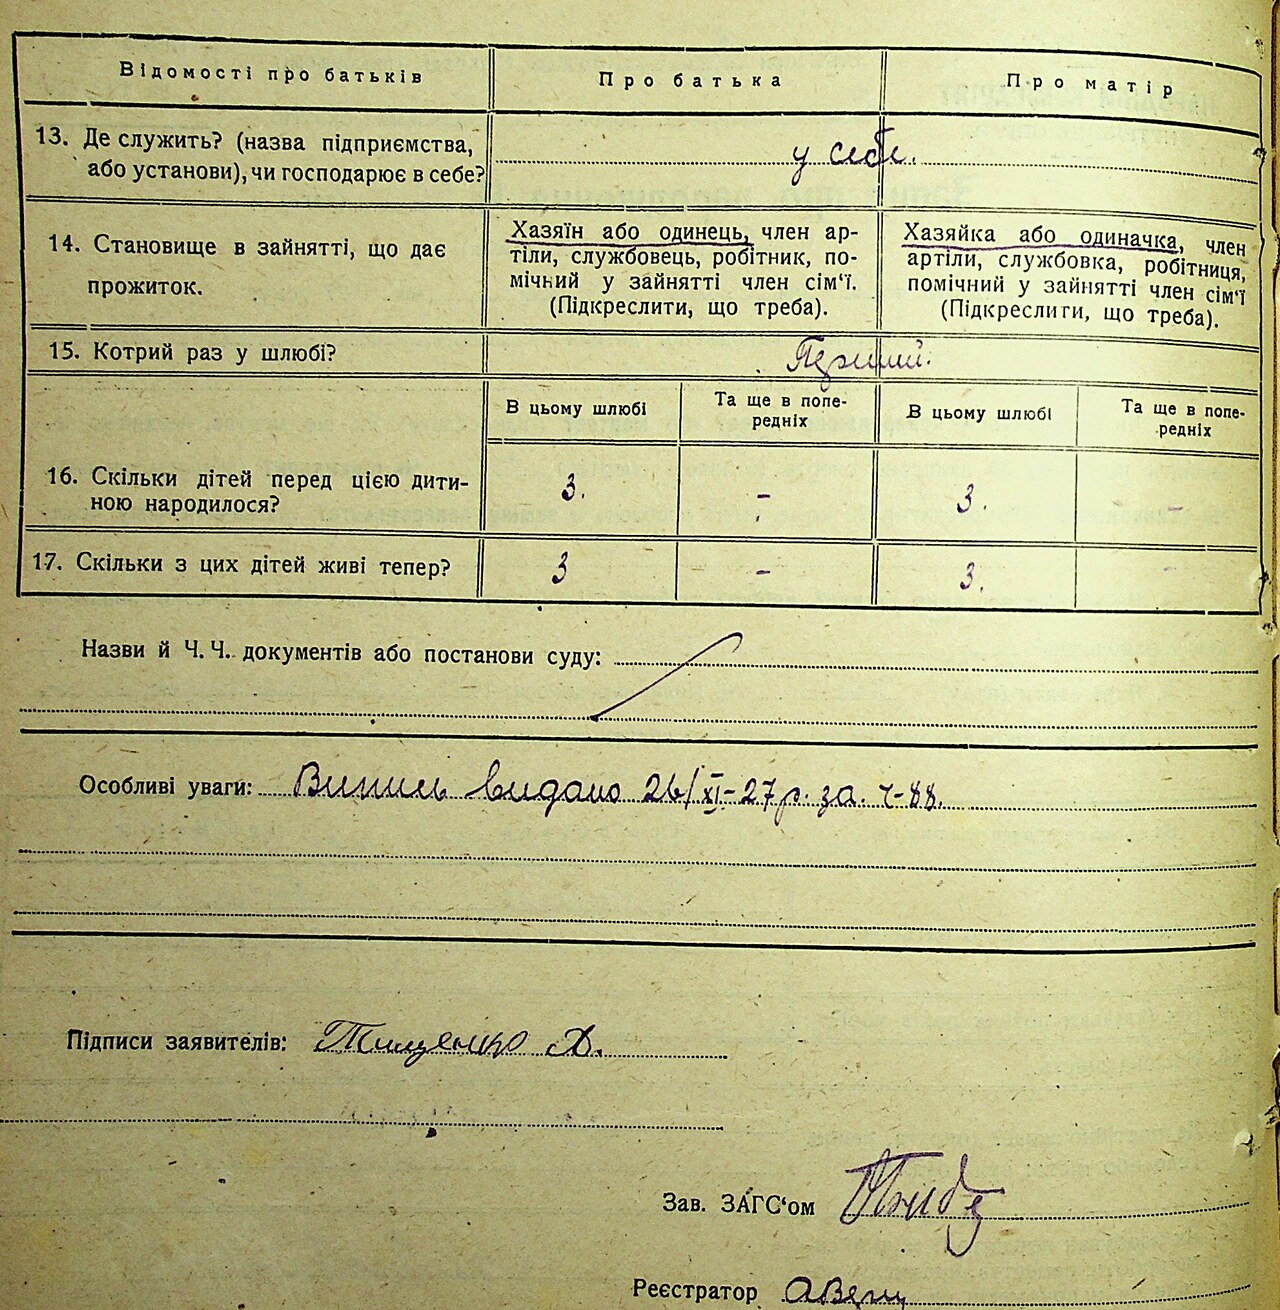 Відомості про батьків Про батька Про матір
13. Де служить? (назва підприємства,
або установи), чи господарює в себе?
у себе.
14. Становище в зайнятті, що дає
прожиток.
Хазяїн або одинець, член ар-
тіли, службовець, робітник, по-
мічний у зайнятті член сім'ї.
(Підкреслити, що треба).
Хазяйка або одиначка, член
артіли, службовка, робітниця,
помічний у зайнятті член сім'ї
(Підкреслити, що треба).
15. Котрий раз у шлюбі? Перший.
В цьому шлюбі
Та ще в попе-
редніх
В цьому шлюбі
Та ще в попе-
редніх
16. Скільки дітей перед цією дити-
ною народилося?
3. - 3. -
17. Скільки з цих дітей живі тепер? 3 - 3. -
Назви й Ч. Ч. документів або постанови суду:
Особливі уваги: Випись видано 26/XI-27 р. за ч-88.
Підписи заявителів: Тищенко Д.
Зав. ЗАГС'ом
Реєстратор